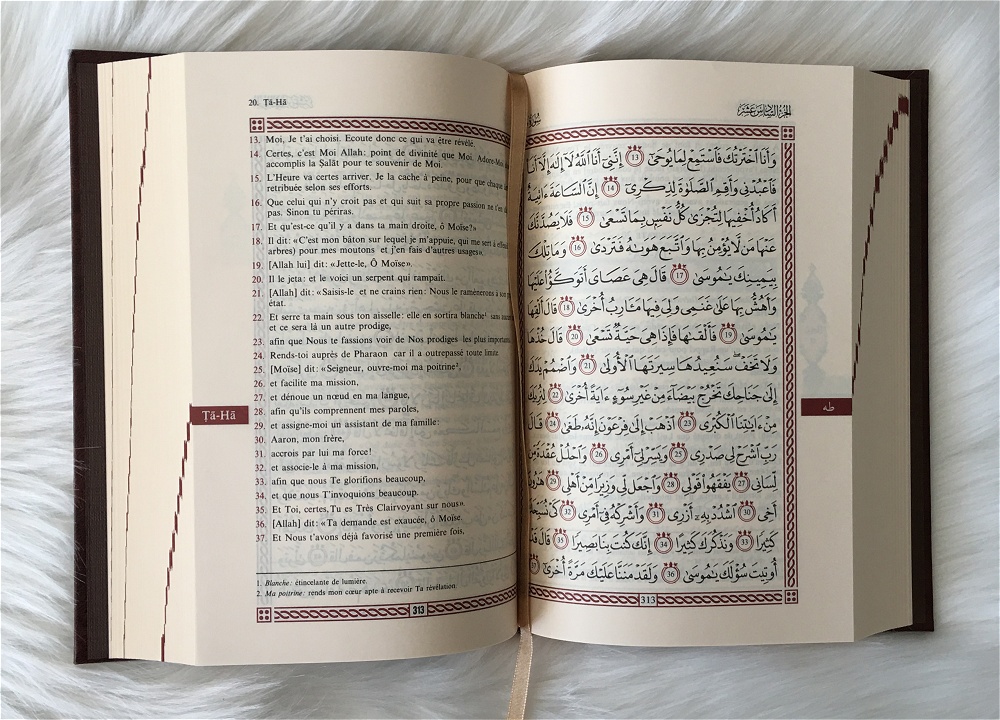 20. Ṭā-Hā
13. Moi, Je t'ai choisi. Ecoute donc ce qui va être révélé.
14. Certes, c'est Moi Allah: point de divinité que Moi. Adore-Moi
accomplis la Ṣalāt pour te souvenir de Moi.
15. L'Heure va certes arriver. Je la cache à peine, pour que chaque
retribuée selon ses efforts.
16. Que celui qui n'y croit pas et qui suit sa propre passion ne t'en
pas. Sinon tu périras.
17. Et qu'est-ce qu'il y a dans ta main droite, ô Moïse?»
18. Il dit: «C'est mon bâton sur lequel je m'appuie, qui me sert à
arbres) pour mes moutons et j'en fais d'autres usages».
19. [Allah lui] dit: «Jette-le, Ô Moïse».
20. Il le jeta: et le voici un serpent qui rampait.
21. [Allah] dit: «Saisis-le et ne crains rien: Nous le ramènerons à son
état.
22. Et serre ta main sous ton aisselle: elle en sortira blanche¹ sans
et ce sera là un autre prodige,
23. afin que Nous te fassions voir de Nos prodiges les plus
24. Rends-toi auprès de Pharaon car il a outrepassé toute limite.
25. [Moïse] dit: «Seigneur, ouvre-moi ma poitrine²,
26. et facilite ma mission,
27. et dénoue un nœud en ma langue,
28. afin qu'ils comprennent mes paroles,
29. et assigne-moi un assistant de ma famille:
30. Aaron, mon frère,
31. accrois par lui ma force!
32. et associe-le à ma mission,
33. afin que nous Te glorifions beaucoup,
34. et que nous T'invoquions beaucoup.
35. Et Toi, certes, Tu es Très Clairvoyant sur nous».
36. [Allah] dit: «Ta demande est exaucée, ô Moïse.
37. Et Nous t'avons déjà favorisé une première fois,
1. Blanche: étincelante de lumière.
2. Ma poitrine: rends mon cœur apte à recevoir Ta révélation.
313
Ṭā-Hā
الجزء السادس عشر
وَأَنَا ٱخْتَرْتُكَ فَٱسْتَمِعْ لِمَا يُوحَىٰٓ 13 إِنَّنِىٓ أَنَا ٱللَّهُ لَآ إِلَٰهَ إِلَّآ أَنَا۠
فَٱعْبُدْنِى وَأَقِمِ ٱلصَّلَوٰةَ لِذِكْرِىٓ 14 إِنَّ ٱلسَّاعَةَ ءَاتِيَةٌ
أَكَادُ أُخْفِيهَا لِتُجْزَىٰ كُلُّ نَفْسٍۭ بِمَا تَسْعَىٰ 15 فَلَا يَصُدَّنَّكَ
عَنْهَا مَن لَّا يُؤْمِنُ بِهَا وَٱتَّبَعَ هَوَىٰهُ فَتَرْدَىٰ 16 وَمَا تِلْكَ
بِيَمِينِكَ يَٰمُوسَىٰ 17 قَالَ هِىَ عَصَاىَ أَتَوَكَّؤُا۟ عَلَيْهَا
وَأَهُشُّ بِهَا عَلَىٰ غَنَمِى وَلِىَ فِيهَا مَـَٔارِبُ أُخْرَىٰ 18 قَالَ أَلْقِهَا
يَٰمُوسَىٰ 19 فَأَلْقَىٰهَا فَإِذَا هِىَ حَيَّةٌ تَسْعَىٰ 20 قَالَ خُذْهَا
وَلَا تَخَفْ ۖ سَنُعِيدُهَا سِيرَتَهَا ٱلْأُولَىٰ 21 وَٱضْمُمْ يَدَكَ
إِلَىٰ جَنَاحِكَ تَخْرُجْ بَيْضَآءَ مِنْ غَيْرِ سُوٓءٍ ءَايَةً أُخْرَىٰ 22 لِنُرِيَكَ
مِنْ ءَايَٰتِنَا ٱلْكُبْرَى 23 ٱذْهَبْ إِلَىٰ فِرْعَوْنَ إِنَّهُۥ طَغَىٰ 24 قَالَ
رَبِّ ٱشْرَحْ لِى صَدْرِى 25 وَيَسِّرْ لِىٓ أَمْرِى 26 وَٱحْلُلْ عُقْدَةً مِّن
لِّسَانِى 27 يَفْقَهُوا۟ قَوْلِى 28 وَٱجْعَل لِّى وَزِيرًا مِّنْ أَهْلِى 29 هَٰرُونَ
أَخِى 30 ٱشْدُدْ بِهِۦٓ أَزْرِى 31 وَأَشْرِكْهُ فِىٓ أَمْرِى 32 كَىْ نُسَبِّحَكَ
كَثِيرًا 33 وَنَذْكُرَكَ كَثِيرًا 34 إِنَّكَ كُنتَ بِنَا بَصِيرًا 35 قَالَ قَدْ
أُوتِيتَ سُؤْلَكَ يَٰمُوسَىٰ 36 وَلَقَدْ مَنَنَّا عَلَيْكَ مَرَّةً أُخْرَىٰٓ 37
313
طه